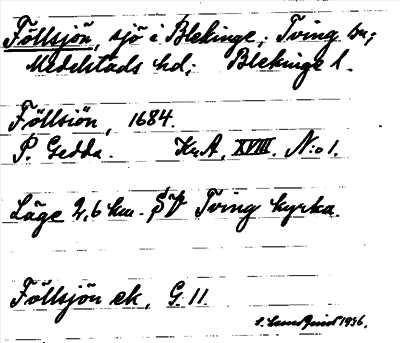 Föllsjön, sjö i Blekinge; Tving sn;
Medelstads hd; Blekinge l.
Föllsiön, 1684.
P. Gedda. Kr.A. XVIII. N:o 1.
Läge 2,6 km. SV Tving kyrka.
Föllsjön ek. G. 11
1936.